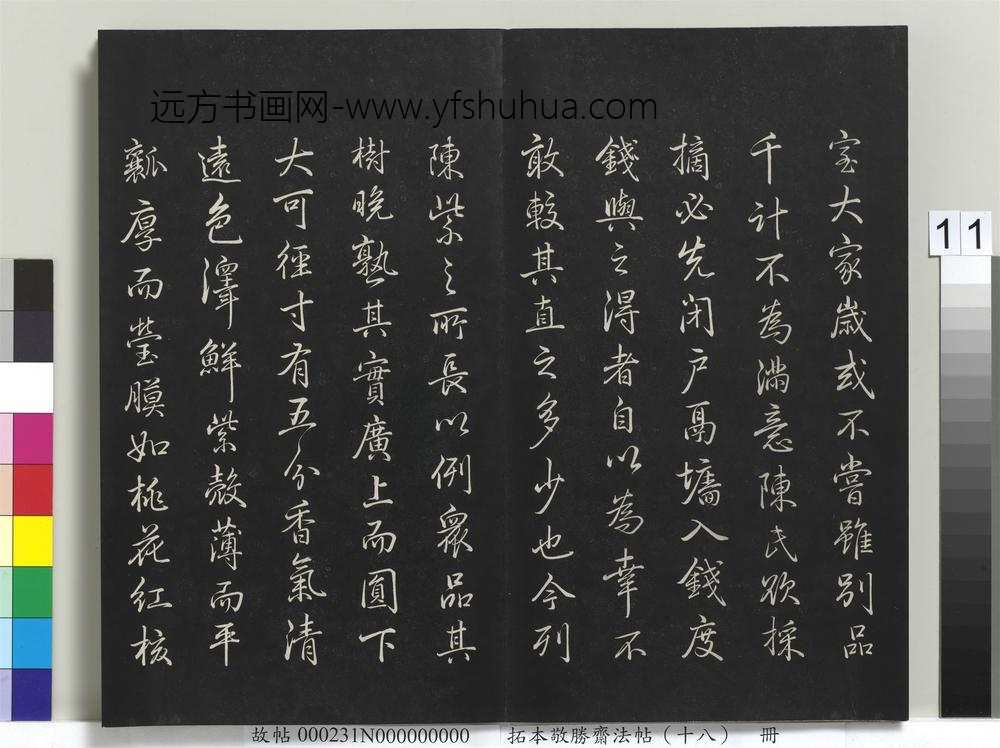 远方书画网-www.yfshuhua.com
室大家歳或不嘗雖別品
千計不為滿意陳氏欲採
摘必先闭户鬲墻入錢度
錢與之得者自以為幸不
敢較其直之多少也今列
陳紫之所長以例衆品其
樹晚熟其實廣上而圓下
大可徑寸有五分香氣清
遠色澤鮮紫殼薄而平
瓤厚而瑩膜如桃花紅核
11
故帖 000231N000000000 拓本敬勝齋法帖（十八） 冊